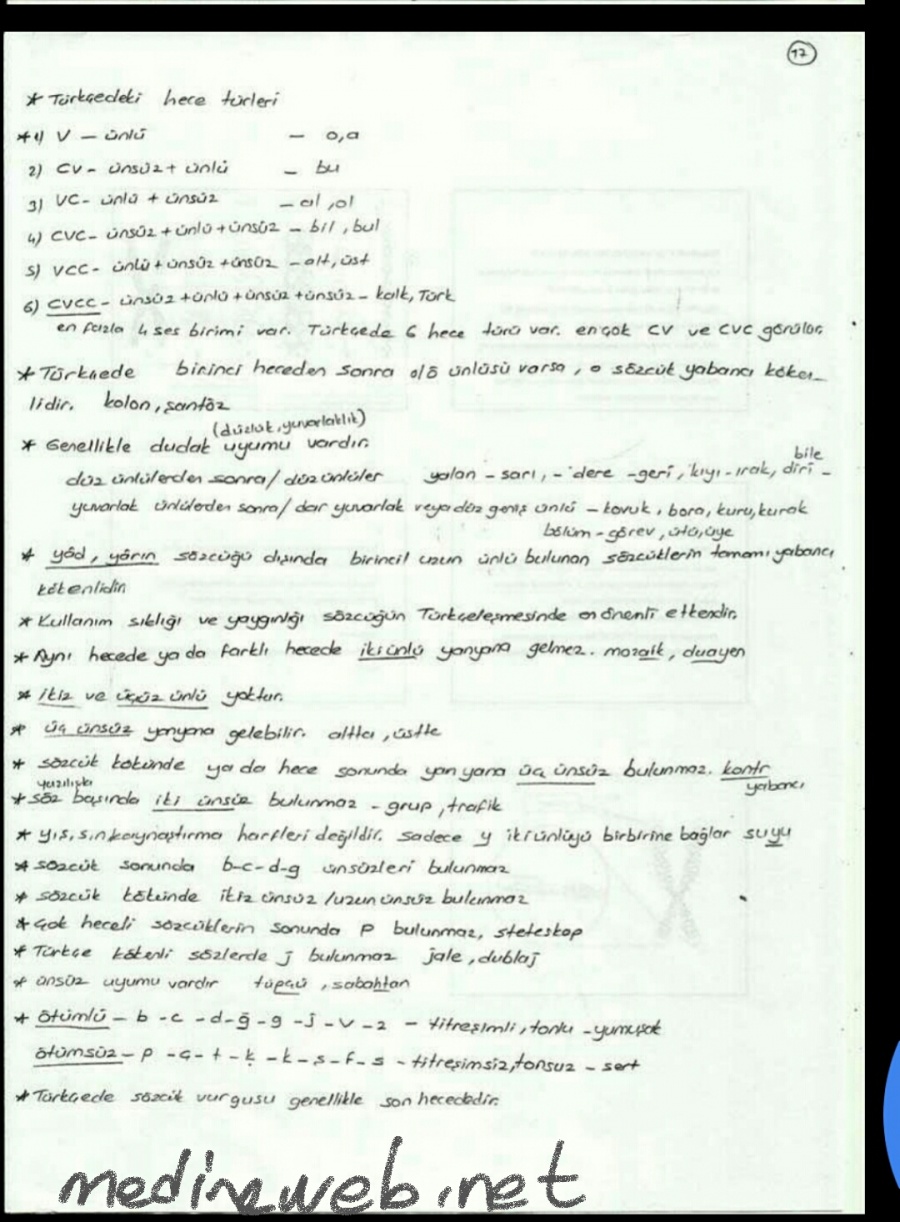 17
* Türkçedeki hece türleri
*1) V – ünlü – o,a
2) CV – ünsüz + ünlü – bu
3) VC – ünlü + ünsüz – al, ol
4) CVC – ünsüz + ünlü + ünsüz – bil, bul
5) VCC – ünlü + ünsüz + ünsüz – alt, üst
6) CVCC – ünsüz + ünlü + ünsüz + ünsüz – kalk, Türk
en fazla 4 ses birimi var. Türkçede 6 hece türü var. en çok CV ve CVC görülür.
* Türkçede birinci heceden sonra o/ö ünlüsü varsa, o sözcük yabancı köken_
lidir. kolon, şantöz
(düzlük, yuvarlaklık)
* Genellikle dudak uyumu vardır.
bile
düz ünlülerden sonra/ düz ünlüler yalan – sarı, – dere – geri, kıyı – ırak, diri –
yuvarlak ünlülerden sonra/ dar yuvarlak veya düz geniş ünlü – kovuk, bora, kuru, kurak
bölüm – görev, ütü, üye
* yâd, yârın sözcüğü dışında birincil uzun ünlü bulunan sözcüklerin tamamı yabancı
kökenlidir.
* Kullanım sıklığı ve yaygınlığı sözcüğün Türkçeleşmesinde en önemli etkendir.
* Aynı hecede ya da farklı hecede iki ünlü yanyana gelmez. mozaik, duayen
* ikiz ve üçüz ünlü yoktur.
* üç ünsüz yanyana gelebilir. altta, üstte
* sözcük kökünde ya da hece sonunda yan yana üç ünsüz bulunmaz. kontr
yazılışta yabancı
* söz başında iki ünsüz bulunmaz – grup, trafik
* y,ş,s,n kaynaştırma harfleri değildir. sadece y iki ünlüyü birbirine bağlar suyu
* sözcük sonunda b-c-d-g ünsüzleri bulunmaz
* sözcük kökünde ikiz ünsüz /uzun ünsüz bulunmaz
* çok heceli sözcüklerin sonunda p bulunmaz, steteskop
* Türkçe kökenli sözlerde j bulunmaz jale, dublaj
* ünsüz uyumu vardır tüpçü, sabahtan
* ötümlü – b – c – d – ğ – g – j – v – z – titreşimli, tonlu – yumuşak
ötümsüz – p – ç – t – ḳ – k – ş – f – s – titreşimsiz, tonsuz – sert
* Türkçede sözcük vurgusu genellikle son hecededir.
medineweb.net